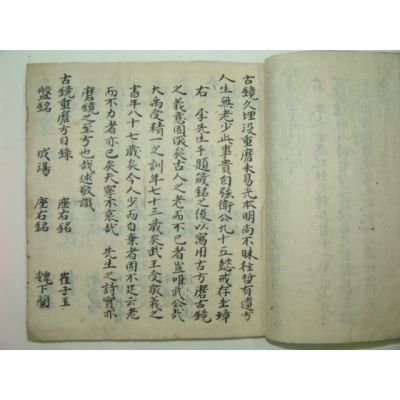 古鏡久埋没重磨未易光本明尚不昧往哲有遺方
人生無老少此事貴自強衛公九十五懿戒存圭璋
右李先生手題箴銘之後以寓用古方磨古鏡
之義意固深矣古人之老而不已者豈唯武公哉
大禹受精一之訓年七十三歲矣武王受敬義之
書年八十七歲矣今人少而自棄者固不足云老
而不力者亦已矣夫寧不哀哉 先生之詩實亦
磨鏡之至方也哉速敬識
古鏡重磨方目錄
盤銘 成湯 座右銘 崔子玉
座右銘 魏卞蘭